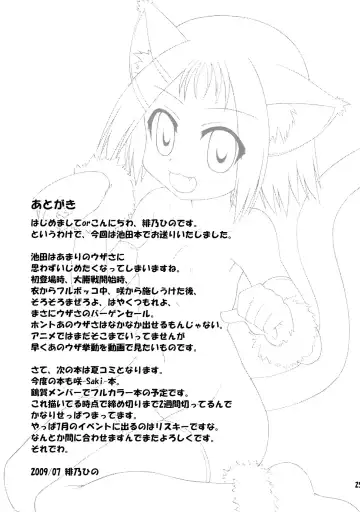 あとがき
はじめましてorこんにちわ、緋乃ひのです。
というわけで、今回は池田本でお送りいたしました。
池田はあまりのウザさに
思わずいじめたくなってしまいますね。
初登場時、大勝戦開始時、
衣からフルボッコ中、咲から施しうけた後、
そろそろまぜろよ、はやくつもれよ、
まさにウザさのバーゲンセール。
ホントあのウザさはなかなか出せるもんじゃない。
アニメではまだどこまでいってませんが
早くあのウザ挙動を動画で見たいものです。
さて、次の本は夏コミとなります。
今度の本も咲-Saki-本。
鶴賀メンバーでフルカラー本の予定です。
これ描いてる時点で締め切りまで2週間切ってるんで
かなりせっぱつまってます。
やっぱ7月のイベントに出るのはリスキーですな。
なんとか間に合わせますんでまたよろしくです。
それでわ。
2009/07 緋乃ひの